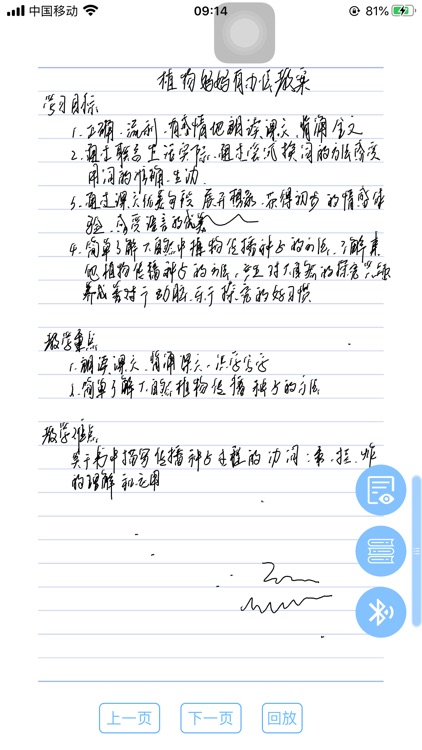 中国移动
09:14
81%
植物妈妈有办法教案
学习目标
1. 正确、流利、有感情地朗读课文，背诵全文
2. 通过联系生活实际，通过尝试换词的方法感受
用词的准确、生动.
3. 通过课文优美句段 展开想象，获得初步的情感体
验，感受语言的优美
4. 简单了解大自然中植物传播种子的方法，了解其
他植物传播种子的方法，产生对大自然的探究兴趣
养成善于动脑，乐于探究的好习惯
教学重点
1. 朗读课文、背诵课文、识字写字
2. 简单了解大自然植物传播种子的方法
教学难点
关于书中描写传播种子过程的动词：乘、挂、炸
的理解和运用
上一页
下一页
回放